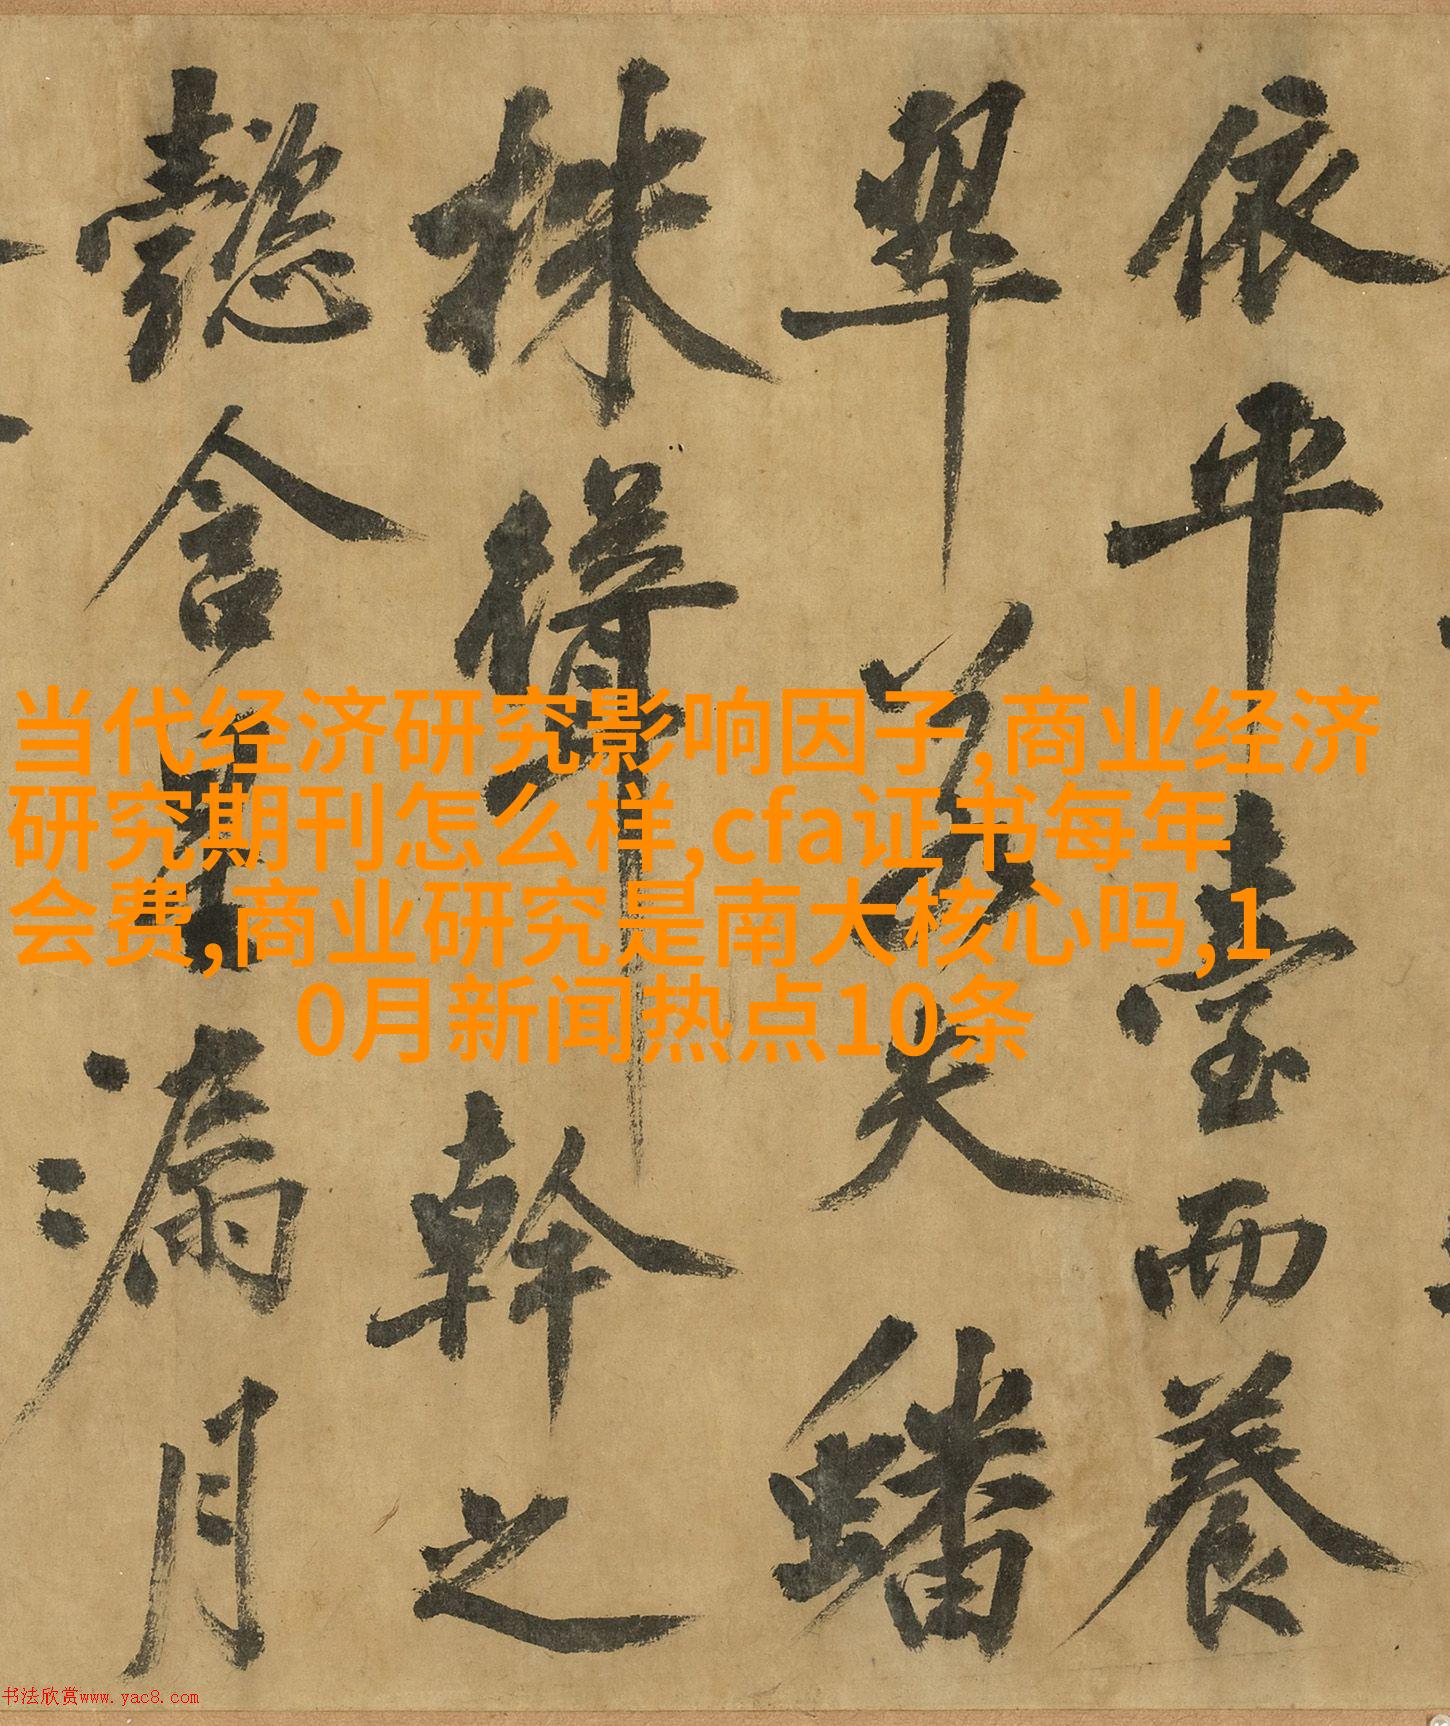 依平臺而養
翠若夫蟠
株聳幹之
懿含星漏月
当代经济研究影响因子,商业经济
研究期刊怎么样,cfa证书每年
会费,商业研究是南大核心吗,1
0月新闻热点10条
书法欣赏www.yac8.com